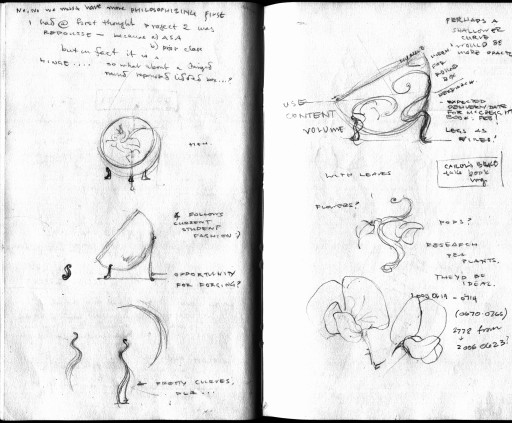 No, no we must have more PHILOSOPHIZING first
I had @ first thought Project 2 was
REPOUSSE - because a) ASA
b) PDR class
but in fact it is a
HINGE.... so what about a hinged
round repoussé lidded box...?
MEH.
& FOLLOWS
CURRENT
STUDENT
FASHION?)
OPPORTUNITY
FOR FORGING?
PRETTY CURVES,
PERHAPS A
SHALLOWER
CURVE
WOULD BE
MORE PRACT
USE
CONTENT
VOLUME
ROUND
BOX
RESEARCH
- EXPECTED
DELIVERY DATE
BOOK: FEB!
LEGS AS
VINES!
book
WITH LEAVES
FLOWERS?
PODS?
RESEARCH
PEA
PLANTS.
THEY'D BE
IDEAL.
20060619 - 0719
(0670-0766)
2778 from
20060623?